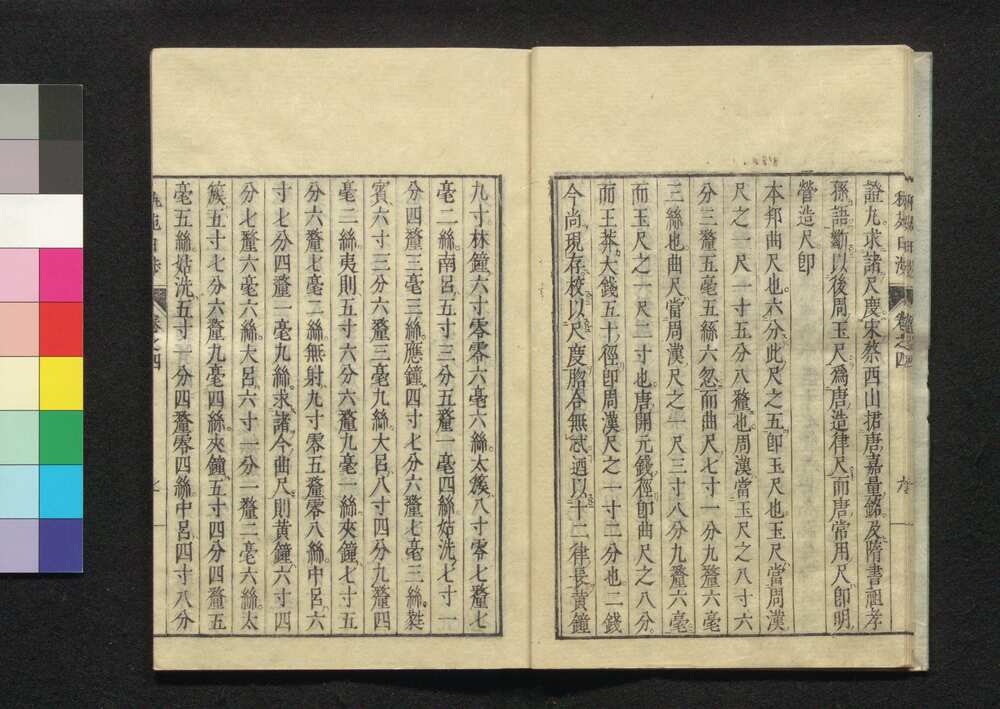 證尤。求諸尺度。宋蔡西山捃唐嘉量銘及隋書祖孝
孫語。斷以後周玉尺爲唐造律尺。而唐常用尺卽明
營造尺卽
本邦曲尺也。六分此尺之五卽玉尺也。玉尺當周漢
尺之一尺一寸五分八釐也。周漢當玉尺之八寸六
分三釐五毫五絲六忽。而曲尺七寸一分九釐六毫
三絲也。曲尺當周漢尺之一尺三寸八分九釐六毫
而玉尺之一尺二寸也。唐開元錢徑卽曲尺之八分。
而王莽大錢五十徑卽周漢尺之一寸二分也。二錢
今尚現存。校以尺度脗合無忒。迺以十二律長黃鐘
九寸林鐘六寸零零六毫六絲。太簇八寸零七釐七
毫二絲。南呂五寸三分五釐一毫四絲。姑洗七寸一
分四釐三毫三絲。應鐘四寸七分六釐七毫三絲。蕤
賓六寸三分六釐三毫九絲。大呂八寸四分九釐四
毫二絲。夷則五寸六分六釐九毫一絲。夾鐘七寸五
分六釐七毫二絲。無射九寸零五釐零八絲。中呂六
寸七分四釐一毫九絲。求諸今曲尺。則黃鐘六寸四
分七釐六毫六絲。大呂六寸一分一釐二毫六絲。太
簇五寸七分六釐九毫四絲。夾鐘五寸四分四釐五
毫五絲。姑洗五寸一分四釐零四絲。中呂四寸八分
卷之四